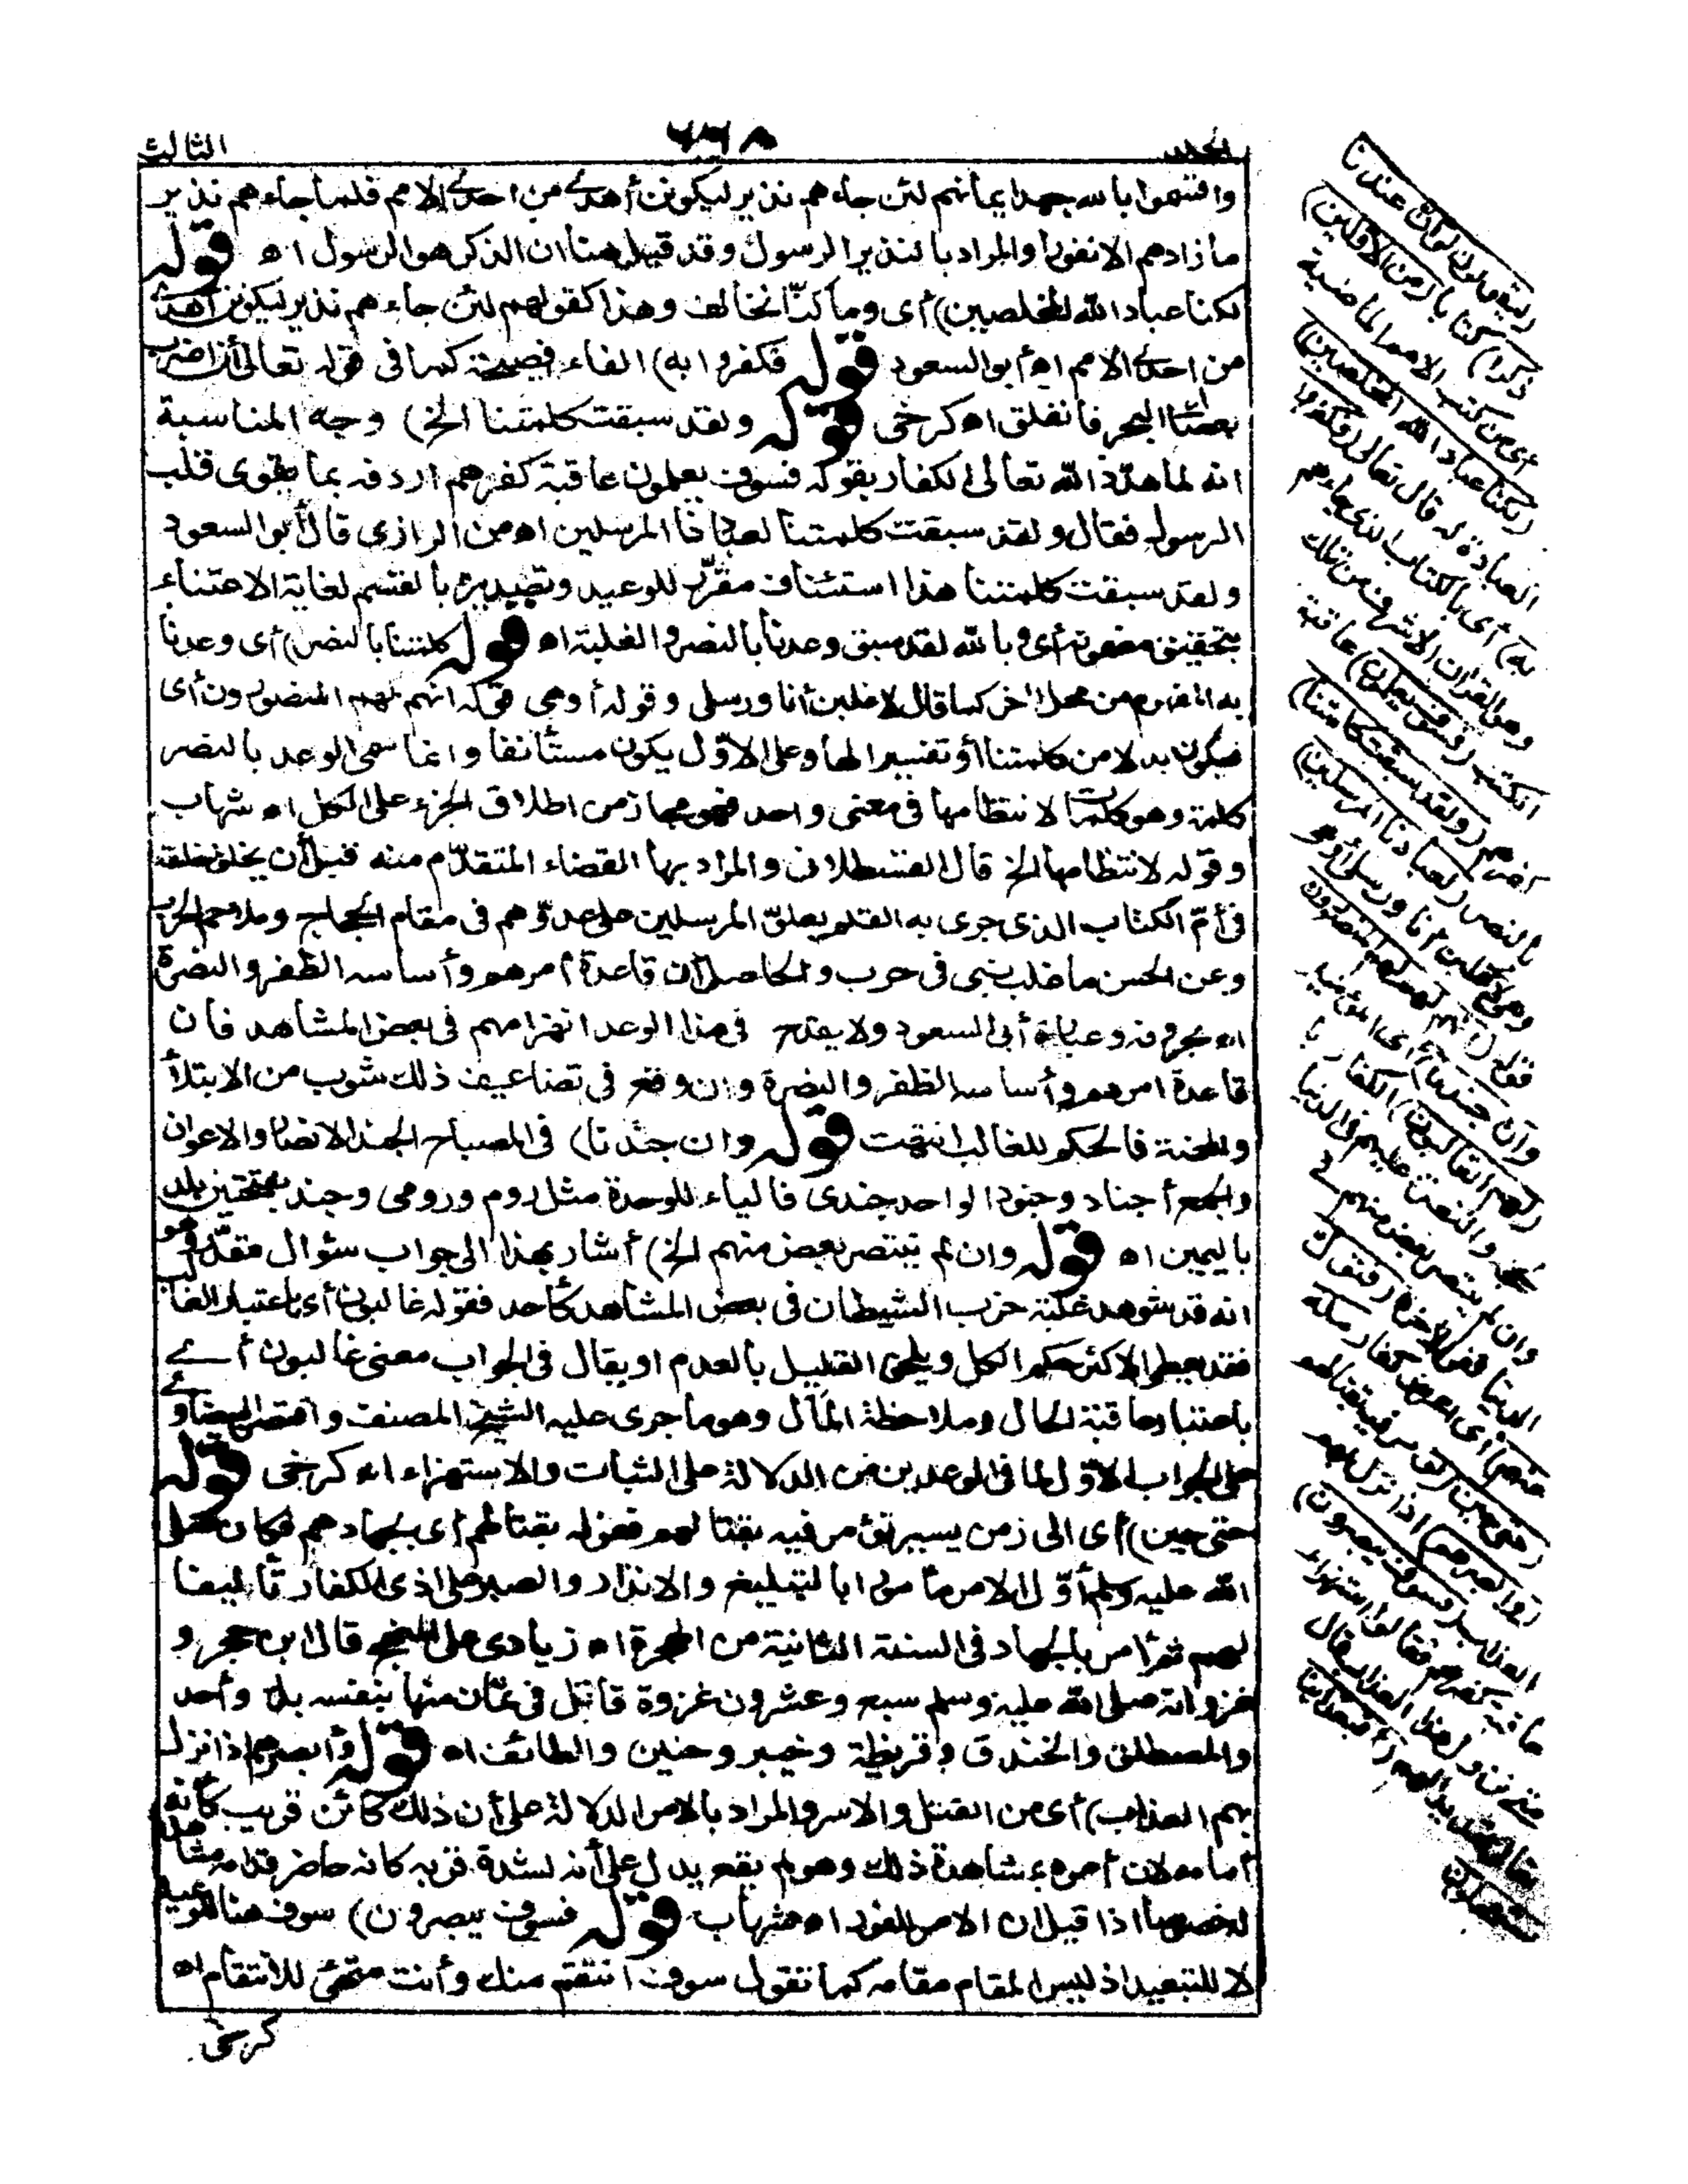 الثالث
وأقسموا بالله جهد أيمانهم لئن جاءهم نذير ليكونن أهدى من احدى الامم فلما جاءهم نذير
ما زادهم الا نفورا والمراد بالنذير الرسول وقد قيل هنا ان الذكر هو الرسول اه قوله
لكنا عباد الله المخلصين) أى وما كنا نخالف وهذا كقولهم لئن جاءهم نذير ليكونن أهدى
من احدى الامم اه أبو السعود قوله فكفروا به) الفاء فصيحة كما فى قوله تعالى أن اضرب
بعصاك البحر فانفلق اه كرخى قوله ولقد سبقت كلمتنا الخ) وجه المناسبة
انه لما هدد الله تعالى الكفار بقوله فسوف يعلمون عاقبة كفرهم اردفه بما يقوى قلب
الرسول فقال ولقد سبقت كلمتنا لعبادنا المرسلين اه من الرازى قال أبو السعود
ولقد سبقت كلمتنا هذا استئناف مقرر للوعيد وتصديره بالقسم لغاية الاعتناء
بتحقيق مضمونه أى وبالله لقد سبق وعدنا بالنصر والغلبة اه قوله كلمتنا بالنصر) أى وعدنا
به المفهوم من محل آخر كما قال لاغلبن أنا ورسلى وقوله أو هى قوله انهم لهم المنصورون أى
فيكون بدلا من كلمتنا أو تفسيرا لها وعلى الاول يكون مستأنفا وانما سمى الوعد بالنصر
كلمة وهو كلمات لانتظامها فى معنى واحد فهو مجاز من اطلاق الجزء على الكل اه شهاب
وقوله لانتظامها الخ قال القسطلانى والمراد بها القضاء المتقدم منه قبل أن يخلق خلقه
فى أم الكتاب الذى جرى به القلم بعلو المرسلين على عدوهم فى مقام الحجاج وملاحم الحرب
وعن الحسن ما غلب نبى فى حرب والحاصل أن قاعدة أمرهم وأساسه الظفر والنصرة
اه بحروفه وعبارة أبى السعود ولا يقدح فى هذا الوعد انهزامهم فى بعض المشاهد فان
قاعدة امرهم وأساسه الظفر والنصرة وان وقع فى تضاعيف ذلك شوب من الابتلاء
والمحنة فالحكم للغالب انتهت قوله وان جندنا) فى المصباح الجند الانصار والاعوان
والجمع أجناد وجنود الواحد جندى فالياء للوحدة مثل روم ورومى وجند بفتحتين بلد
باليمين اه قوله وان لم ينتصر بعض منهم الخ) أشار بهذا الى جواب سؤال مقدر وهو
انه قد شوهد غلبة حزب الشيطان فى بعض المشاهد كأحد فقوله غالبون أى باعتبار الغالب
فقد يعطى الاكثر حكم الكل ويلحق القليل بالعدم او يقال فى الجواب معنى غالبون أى
باعتبار عاقبة الحال وملاحظة المآل وهو ما جرى عليه الشيخ المصنف واقتصر البيضاوى
على الجواب الاول لما فى الوعدين من الدلالة على الثبات والاستهزاء اه كرخى قوله
حتى حين) أى الى زمن يسير تؤمر فيه بقتالهم فقوله بقتالهم أى بجهادهم فكان صلى
الله عليه وسلم أول الامر مأمورا بالتبليغ والانذار والصبر على اذى الكفار تأليفا
لهم ثم أمر بالجهاد فى السنة الثانية من الهجرة اه زيادى على المنهج قال ابن حجر و
غزواته صلى الله عليه وسلم سبع وعشرون غزوة قاتل فى ثمان منها بنفسه بدر وأحد
والمصطلق والخندق وقريظة وخيبر وحنين والطائف اه قوله وأبصرهم اذا نزل
بهم العذاب) أى من القتل والاسر والمراد بالامر الدلالة على أن ذلك كائن قريب كأنه
أمامه لان أمره بمشاهدة ذلك وهو لم يقع يدل على أنه لشدة قربه كانه حاضر قدامه مشاهد
له خصوصا اذا قيل ان الامر للفور اه شهاب قوله فسوف يبصرون) سوف هنا للوعيد
لا للتبعيد اذ ليس المقام مقامه كما تقول سوف أنتقم منك وأنت متهئ للانتقام اه
كرخى
(ليقولون لو أن عندنا
ذكرا) كتابا (من الاولين)
أى من كتب الامم الماضية
(لكنا عباد الله المخلصين)
العبادة له قال تعالى (فكفروا
به) أى بالكتاب الذى جاءهم
وهو القرآن الاشرف من تلك
الكتب (فسوف يعلمون) عاقبة
كفرهم (ولقد سبقت كلمتنا)
بالنصر (لعبادنا المرسلين)
وهى لاغلبن أنا ورسلى أو هى
قوله (انهم لهم المنصورون
وان جندنا) أى المؤمنين
(لهم الغالبون) الكفار با
والنصرة عليهم فى الدنيا
وان لم ينتصر بعض منهم فى
الدنيا ففى الآخرة (فتول
عنهم) أى اعرض عن كفار مكة
(حتى حين) تؤمر فيه بقتالهم
(وأبصرهم) اذا نزل بهم
العذاب (فسوف يبصرون)
عاقبة كفرهم فقالوا استهزاء
متى نزول هذا العذاب قال
تعالى تهديدا لهم (أفبعذابنا
يستعجلون